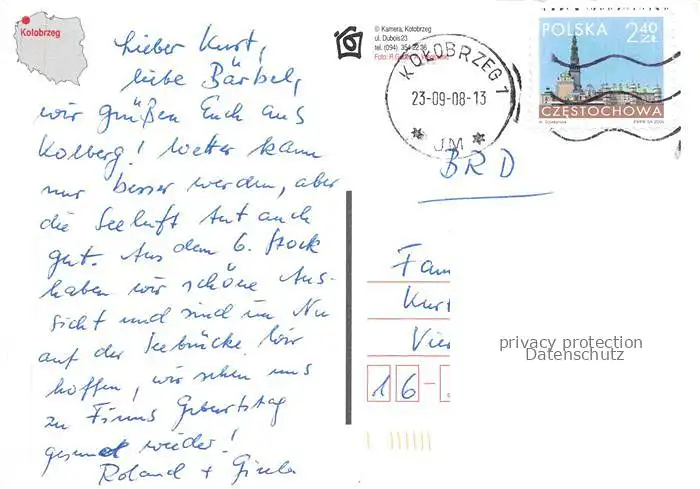 Kołobrzeg
Lieber Kurt,
liebe Bärbel,
wir grüßen Euch aus
Kolberg! Wetter kann
nur besser werden, aber
die Seeluft tut auch
gut. Aus dem 6. Stock
haben wir schöne Aus-
sicht und sind im Nu
auf der Seebrücke. Wir
hoffen, wir sehen uns
zu Finns Geburtstag
gesund wieder!
Roland + Gisela
© Kamera, Kołobrzeg
ul. Dubois 23
tel. (094) 354 22 36
Foto:
KOŁOBRZEG 1
23-09-08-13
JM
POLSKA 2,40 ZŁ
CZĘSTOCHOWA
BRD
Fam
Kurt
Vier
16-
privacy protection
Datenschutz